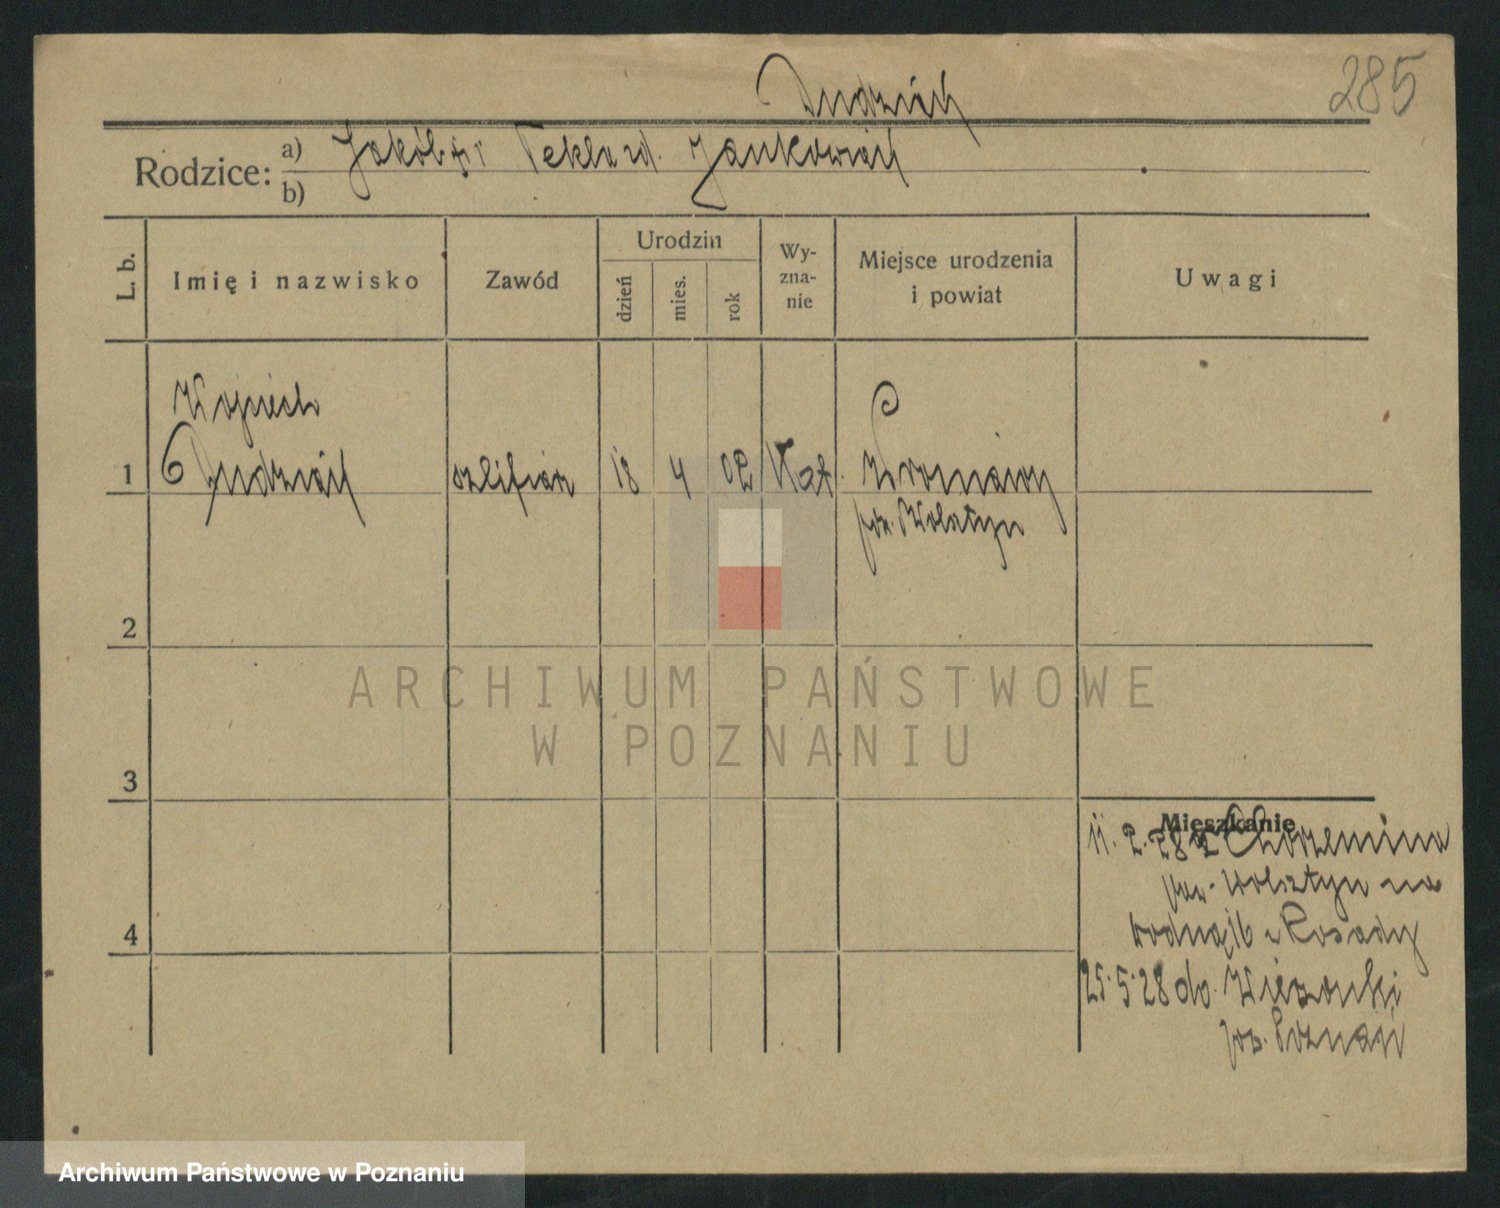 Dudziak
285
Rodzice: a) Jakób i Tekla zd. Jankowiak
b)
L. b.
Imię i nazwisko
Zawód
Urodzin
dzień
mies.
rok
Wy-
zna-
nie
Miejsce urodzenia
i powiat
Uwagi
Wojciech
1 Dudziak szlifierz 18 4 02 Kat.
pow. Wolsztyn
2
ARCHIWUM PAŃSTWOWE
W POZNANIU
3
Mieszkanie
11.2.28 z Chorzemina
pow. Wolsztyn na
Rosady
4
25.5.28 do Wierzonki
pow. Poznań
Archiwum Państwowe w Poznaniu